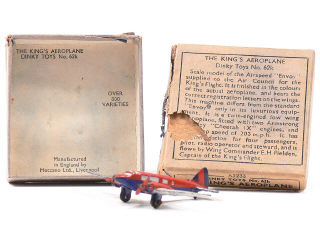 THE KING'S AEROPLANE
DINKY TOYS No. 62k
OVER
200
VARIETIES
Manufactured
in England by
Meccano Ltd., Liverpool
THE KING'S AEROPLANE
Dinky Toys No. 62k
Scale model of the Airspeed "Envoy"
supplied to the Air Council for the
King's Flight. It is finished in the colours
of the actual aeroplane, and bears the
correct registration letters on the wings.
This machine differs from the standard
"Envoy" only in its luxurious
It is a twin-engined, low wing
plane, fitted with two Armstrong
"Cheetah IX" engines, and
speed of 203 m.p.h. It has
for four passengers,
pilot, radio operator and steward, and is
flown by Wing Commander E. H. Fielden,
Captain of the King's Flight.
KING'S AEROPLANE